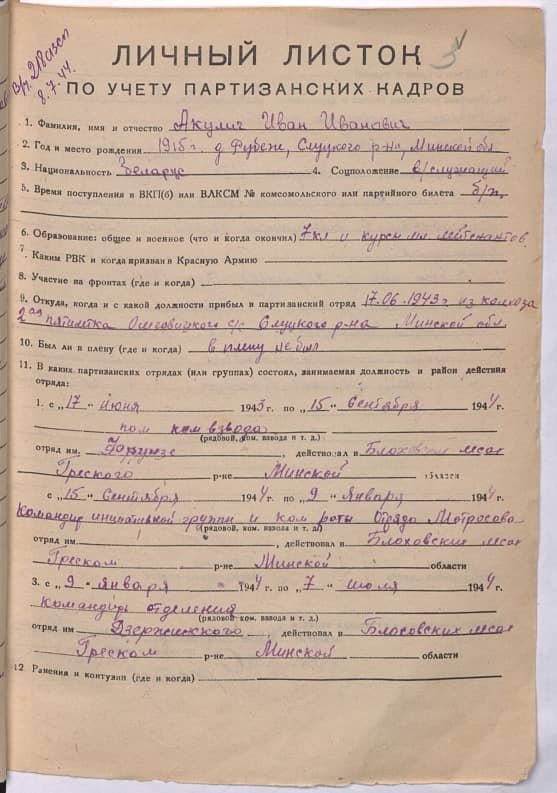 8.7.44.
ЛИЧНЫЙ ЛИСТОК
ПО УЧЕТУ ПАРТИЗАНСКИХ КАДРОВ
1. Фамилия, имя и отчество Акулич Иван Иванович
2. Год и место рождения 1915 г. д Рубеж, Слуцкого р-на, Минской обл
3. Национальность Беларус 4. Соцположение служащий
5. Время поступления в ВКП(б) или ВЛКСМ № комсомольского или партийного билета б/п.
6. Образование: общее и военное (что и когда окончил) 7 кл и курсы мл лейтенантов
7. Каким РВК и когда призван в Красную Армию
8. Участие на фронтах (где и когда)
9. Откуда, когда и с какой должности прибыл в партизанский отряд 17.06.1943 г. из колхоза
2ая пятилетка с/с Слуцкого р-на, Минской обл
10. Был ли в плену (где и когда) в плену не был
11. В каких партизанских отрядах (или группах) состоял, занимаемая должность и район действия
отряда:
1. с „17" июня 1943 г. по „15" сентября 1944 г.
пом ком взвода
(рядовой, ком. взвода и т. д.)
отряд им. Фрунзе, действовал в Блоховских лесах
Греского р-не Минской области
с „15" сентября 1944 г. по „9" января 1944 г.
Командир инициативной группы и ком роты Отряда Матросова
(рядовой, ком. взвода и т. д.)
отряд им., действовал в Блоховских лесах
Греском р-не Минской области
3. с „9" января 1944 г. по „7" июля 1944 г.
командир отделения
(рядовой, ком. взвода и т. д.)
отряд им Дзержинского, действовал в Блоховских лесах
Греском р-не Минской области
12. Ранения и контузии (где и когда)